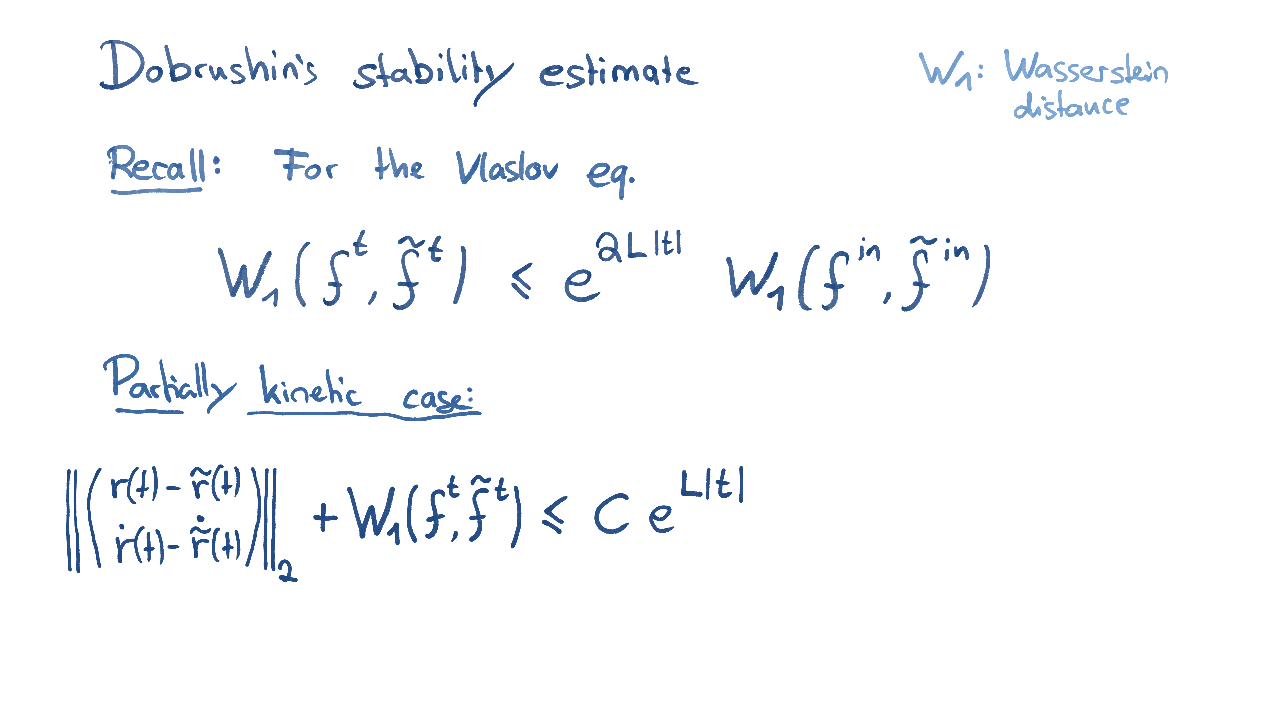 Dobrushin's stability estimate
W₁: Wasserstein
distance
Recall: For the Vlaslov eq.
W₁(fᵗ, f̃ᵗ) ⩽ e^{2L|t|} W₁(f^{in}, f̃^{in})
Partially kinetic case:
‖(r(t) - r̃(t) ; ṙ(t) - \dot{r̃}(t))‖₂ + W₁(fᵗ, f̃ᵗ) ⩽ C e^{L|t|}